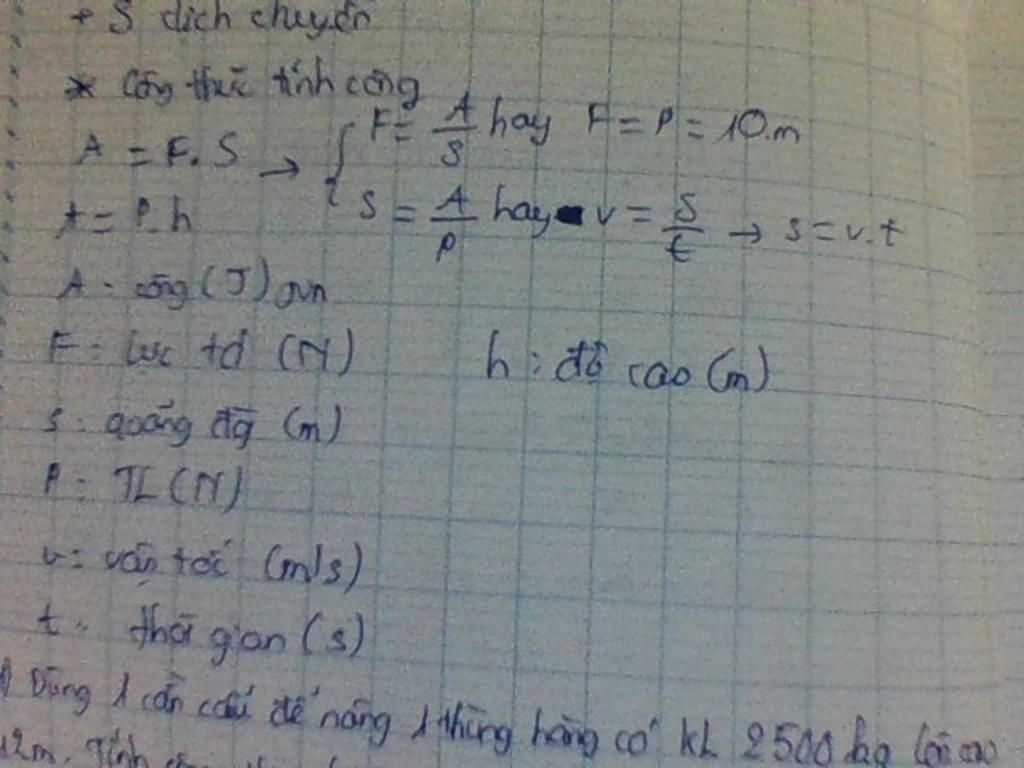 + S dịch chuyển
* Công thức tính công
A = F. S → { F = A/S hay F = P = 10.m
S = A/P hay v = S/t → s = v.t
A = P. h
A : công (J) Jun
F : lực tđ (N)
h : độ cao (m)
s : quãng đg (m)
P : TL (N)
v : vận tốc (m/s)
t : thời gian (s)
1) Dùng 1 cần cẩu để nâng 1 thùng hàng có KL 2500 kg lên cao
12m. Tính